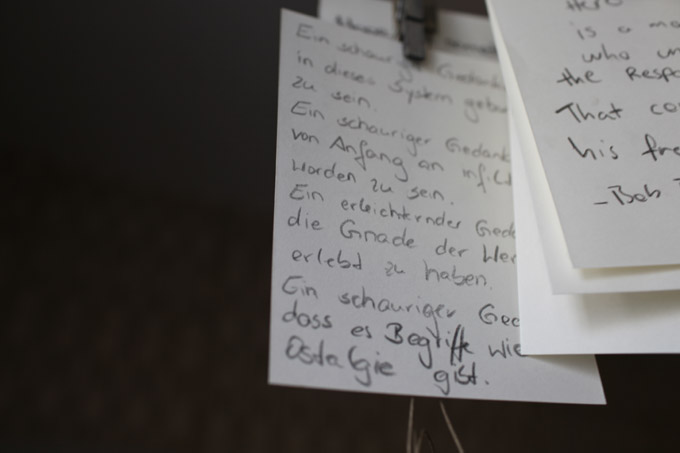 Ein schauriger Gedank
in dieses System gebo
zu sein.
Ein schauriger Gedank
von Anfang an infilt
worden zu sein.
Ein erleichternder Geda
die Gnade der Wen
erlebt zu haben.
Ein schauriger Ged
dass es Begriffe wie
Ostalgie gibt.
Here
is a mo
who un
the Respo
That co
his fre
-Bob